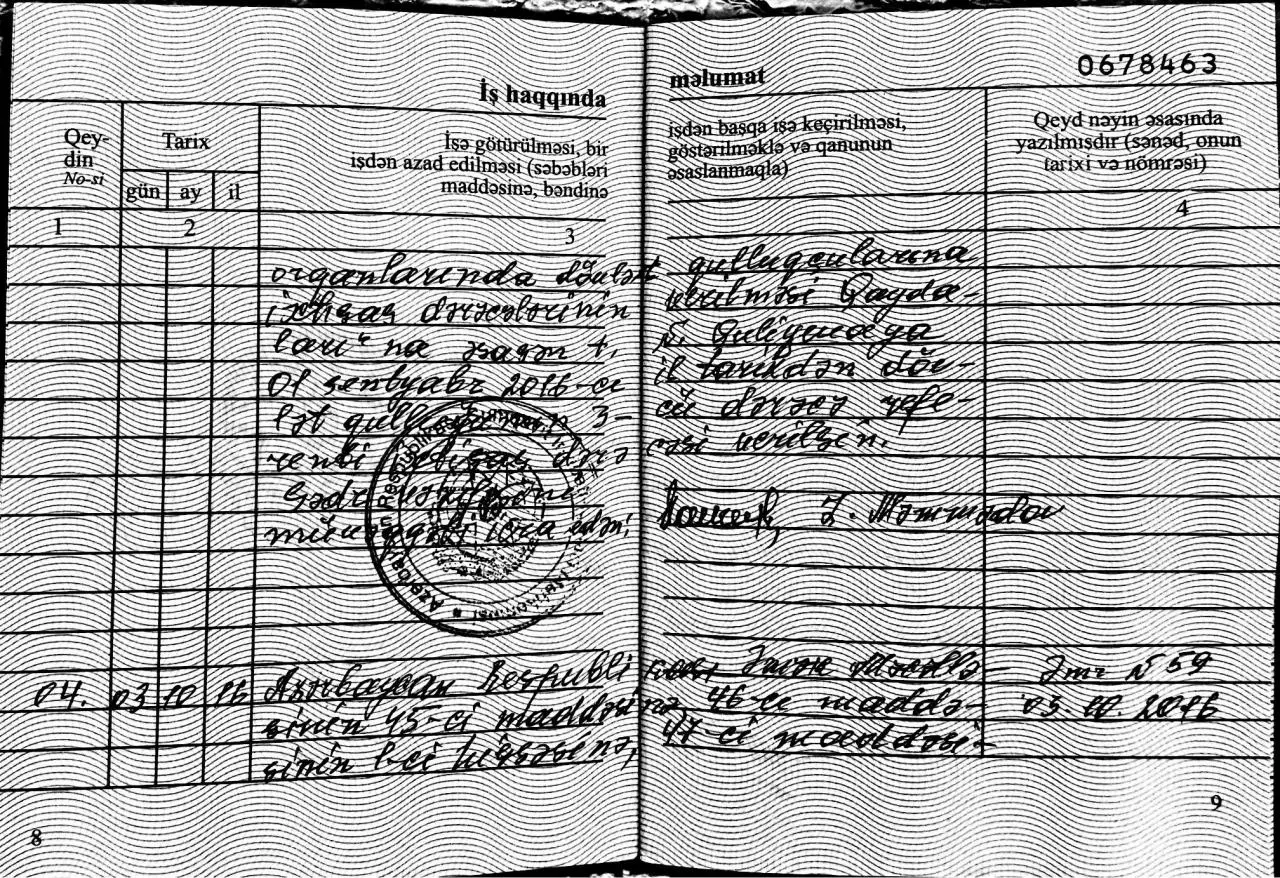 0678463
İş haqqında məlumat
Qeydin No-si
Tarix
gün ay il
İşə götürülməsi, bir işdən başqa işə keçirilməsi,
işdən azad edilməsi (səbəbləri göstərilməklə və qanunun
maddəsinə, bəndinə əsaslanmaqla)
Qeyd nəyin əsasında
yazılmışdır (sənəd, onun
tarixi və nömrəsi)
1 2 3 4
organlarında dövlət qulluqçularına
ixtisas dərəcələrinin verilməsi Qayda-
ları"na əsasən t. S. Quliyevaya
01 sentyabr 2016-cı il tarixdən döv-
lət qulluğunun 3-cü dərəcə refe-
renti ixtisas dərəcəsi verilsin.
Sədr vəzifəsini
müvəqqəti icra edən: Z. Məmmədov
04. 03 10 16 Azərbaycan Respublikası Əmək Məcəllə- Əmr N 59
sinin 45-ci maddəsinə, 46-cı maddə- 03.10.2016
sinin 1-ci hissəsinə, 47-ci maddəsi-
8
9